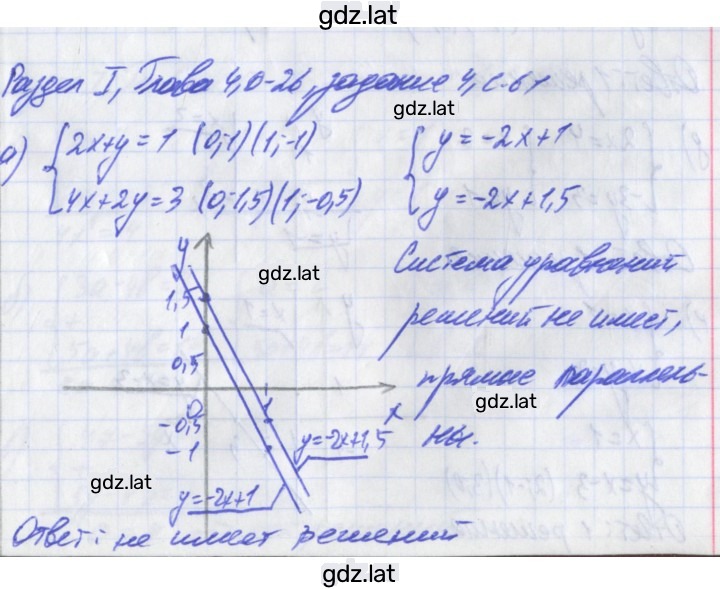 gdz.lat
Раздел I, Глава 4, О-26, задание 4, с. 6х
gdz.lat
а) { 2x+y=1 (0;1)(1;-1) { y=-2x+1
4x+2y=3 (0;1,5)(1;-0,5) y=-2x+1,5
y
gdz.lat
Система уравнений
1,5
решений не имеет,
1
0,5
прямые параллель-
0 1 x
gdz.lat
-0,5
ны.
y=-2x+1,5
-1
gdz.lat
y=-2x+1
Ответ: не имеет решений
gdz.lat